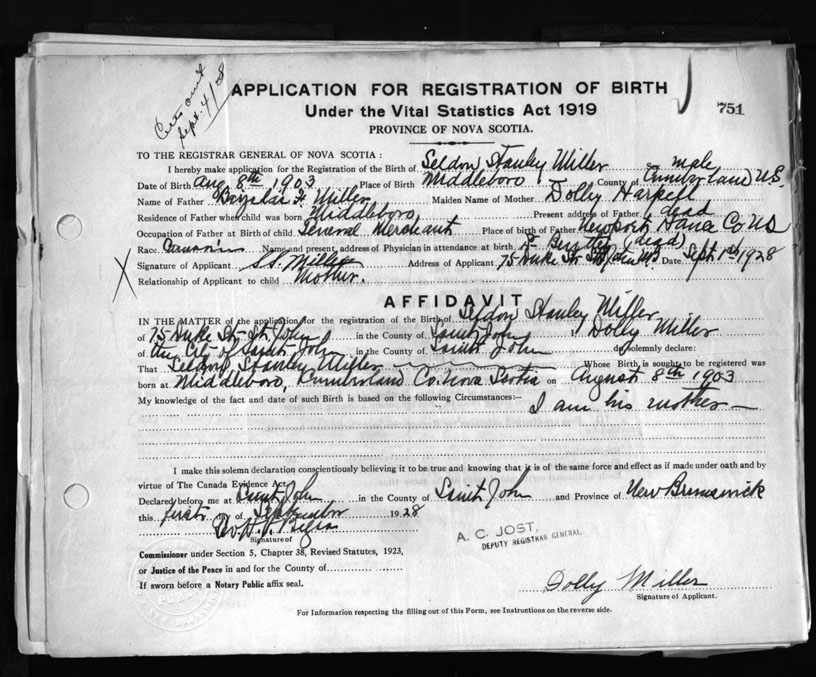 Sept. 4/28
APPLICATION FOR REGISTRATION OF BIRTH
751
Under the Vital Statistics Act 1919
PROVINCE OF NOVA SCOTIA.
TO THE REGISTRAR GENERAL OF NOVA SCOTIA:
I hereby make application for the Registration of the Birth of Seldon Stanley Miller Sex male
Date of Birth Aug 8th 1903 Place of Birth Middleboro County of Cumberland
Name of Father Miller Maiden Name of Mother Dolly
Residence of Father when child was born Middleboro Present address of Father dead
Occupation of Father at Birth of child General Merchant Place of birth of Father Newport Co NS
Race Name and present address of Physician in attendance at birth Dr (dead)
Signature of Applicant Miller Address of Applicant 75 Duke St Date Sept 1st 1928
Relationship of Applicant to child Mother.
X
AFFIDAVIT
IN THE MATTER of the application for the registration of the Birth of Seldon Stanley Miller
of 75 Duke St. St. John in the County of Saint John I Dolly Miller
of the City of Saint John in the County of Saint John do solemnly declare:
That Seldon Stanley Miller Whose Birth is sought to be registered was
born at Middleboro, Cumberland Co. Nova Scotia on August 8th 1903
My knowledge of the fact and date of such Birth is based on the following Circumstances:—
I am his mother—
I make this solemn declaration conscientiously believing it to be true and knowing that it is of the same force and effect as if made under oath and by
virtue of The Canada Evidence Act.
Declared before me at Saint John in the County of Saint John and Province of New Brunswick
this first day of September 1928
Signature of
A. C. JOST,
DEPUTY REGISTRAR GENERAL.
Commissioner under Section 5, Chapter 38, Revised Statutes, 1923,
or Justice of the Peace in and for the County of
If sworn before a Notary Public affix seal.
Dolly Miller
Signature of Applicant.
For Information respecting the filling out of this Form, see Instructions on the reverse side.